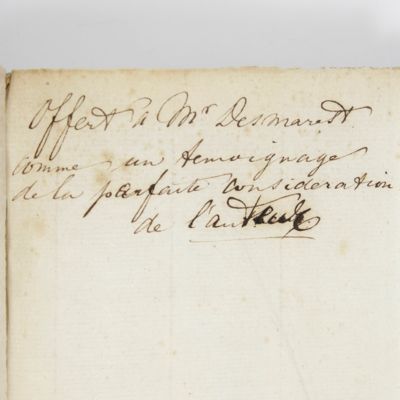 Offert à Mr Desmarest
comme un temoignage
de la parfaite consideration
de l'auteur